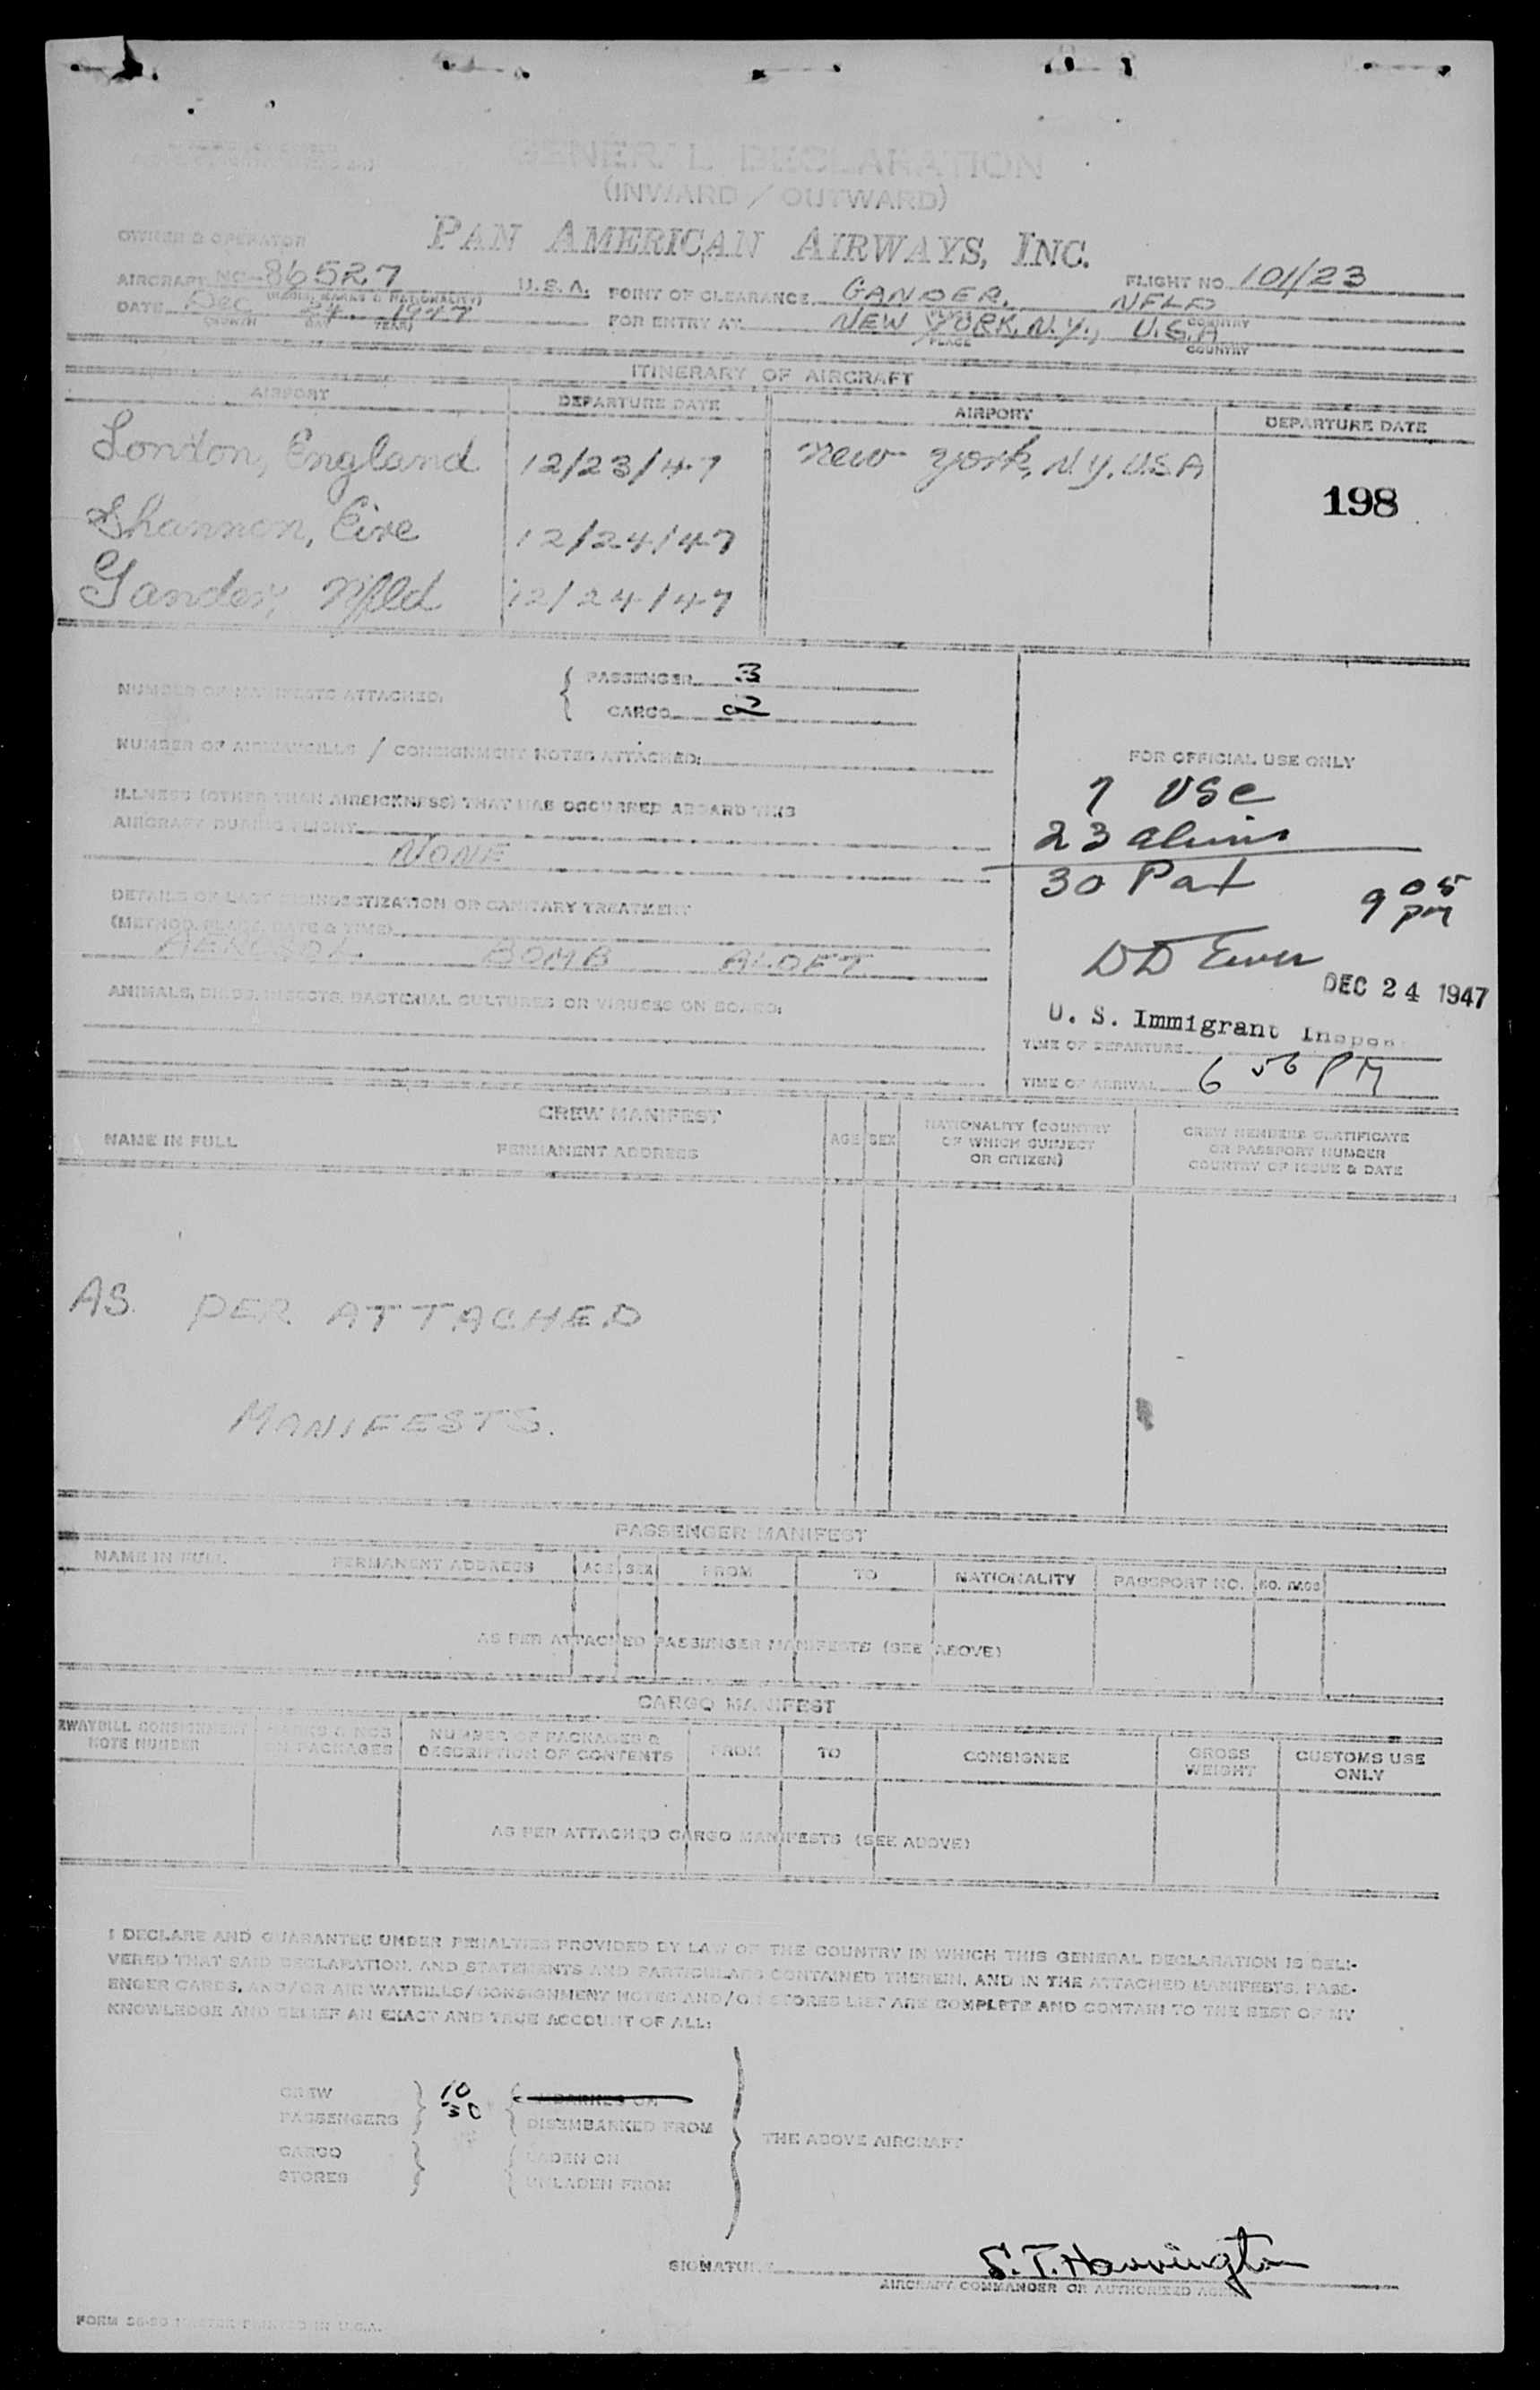 GENERAL DECLARATION
(INWARD / OUTWARD)
OWNER & OPERATOR PAN AMERICAN AIRWAYS, INC.
AIRCRAFT NC-86527 U.S.A. POINT OF CLEARANCE GANDER, NFLD FLIGHT NO. 101/23
(MODEL, MARKS & NATIONALITY) COUNTRY
DATE Dec 24 1947 FOR ENTRY AT NEW YORK, N.Y., U.S.A
(MONTH DAY YEAR) PLACE COUNTRY
ITINERARY OF AIRCRAFT
AIRPORT DEPARTURE DATE AIRPORT DEPARTURE DATE
London, England 12/23/47 New York, N.Y. USA
198
Shannon, Eire 12/24/47
Gander, Nfld 12/24/47
NUMBER OF MANIFESTS ATTACHED: { PASSENGER 3
CARGO 2
NUMBER OF AIRWAYBILLS / CONSIGNMENT NOTES ATTACHED:
FOR OFFICIAL USE ONLY
7 USC
23 aliens
30 Pax
9 05 pm
DEC 24 1947
U. S. Immigrant
TIME OF DEPARTURE
TIME OF ARRIVAL 6 56 PM
ILLNESS (OTHER THAN AIRSICKNESS) THAT HAS OCCURRED ABOARD THIS
AIRCRAFT DURING FLIGHT
NONE
DETAILS OF LAST DISINSECTIZATION OR SANITARY TREATMENT
(METHOD, PLACE, DATE & TIME)
AEROSOL BOMB ALOFT
ANIMALS, BIRDS, INSECTS, BACTERIAL CULTURES OR VIRUSES ON BOARD:
CREW MANIFEST
NAME IN FULL PERMANENT ADDRESS AGE SEX NATIONALITY (COUNTRY OF WHICH SUBJECT OR CITIZEN) CREW MEMBERS CERTIFICATE OR PASSPORT NUMBER COUNTRY OF ISSUE & DATE
AS PER ATTACHED
MANIFESTS.
PASSENGER MANIFEST
NAME IN FULL PERMANENT ADDRESS AGE SEX FROM TO NATIONALITY PASSPORT NO. NO. BAGS
AS PER ATTACHED PASSENGER MANIFESTS (SEE ABOVE)
CARGO MANIFEST
NUMBER OF PACKAGES & DESCRIPTION OF CONTENTS FROM TO CONSIGNEE GROSS WEIGHT CUSTOMS USE ONLY
AS PER ATTACHED CARGO MANIFESTS (SEE ABOVE)
I DECLARE AND GUARANTEE UNDER PENALTIES PROVIDED BY LAW OF THE COUNTRY IN WHICH THIS GENERAL DECLARATION IS DELI-
VERED THAT SAID DECLARATION, AND STATEMENTS AND PARTICULARS CONTAINED THEREIN, AND IN THE ATTACHED MANIFESTS, PASS-
ENGER CARDS, AND/OR AIR WAYBILLS/CONSIGNMENT NOTES AND/OR STORES LIST ARE COMPLETE AND CONTAIN TO THE BEST OF MY
KNOWLEDGE AND BELIEF AN EXACT AND TRUE ACCOUNT OF ALL:
CREW 10
PASSENGERS 30 DISEMBARKED FROM
THE ABOVE AIRCRAFT
CARGO LADEN ON
STORES UNLADEN FROM
SIGNATURE S. T. Harrington
AIRCRAFT COMMANDER OR AUTHORIZED AGENT